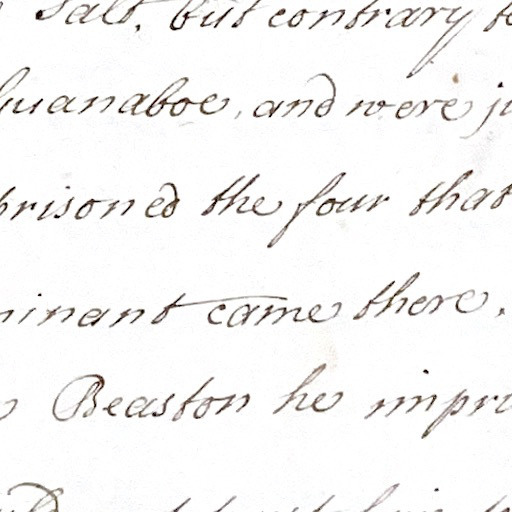 Salt, but contrary t
Guanaboe, and were ju
prisoned the four that
inant came there.
Beaston he impri